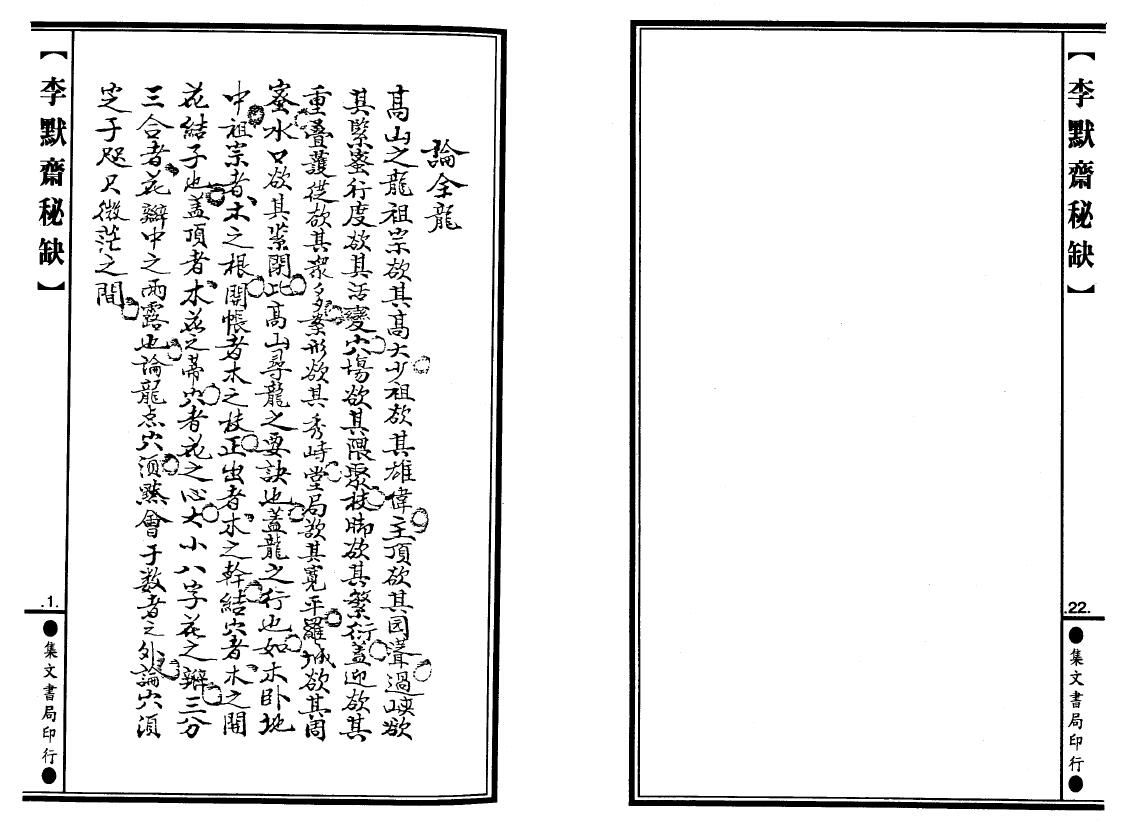 【李默齋秘缺】
.22.
●集文書局印行●
論全龍
高山之龍祖宗欲其高大少祖欲其雄偉主頂欲其园聳過峡欲
其緊密行度欲其活變穴塲欲其隈聚枝脚欲其繁衍蓋迎欲其
重叠護從欲其衆多案形欲其秀峙堂局欲其寬平羅城欲其周
密水口欲其紧閉此高山尋龍之要訣也蓋龍之行也如木卧地
中祖宗者木之根開帳者木之枝正出者木之幹結穴者木之開
花結子也盖頂者木花之蒂穴者花之心大小八字花之辦三分
三合者花辦中之雨露也論龍点穴須默會于数者之外論穴須
定于咫尺微茫之間
【李默齋秘缺】
.1.
●集文書局印行●